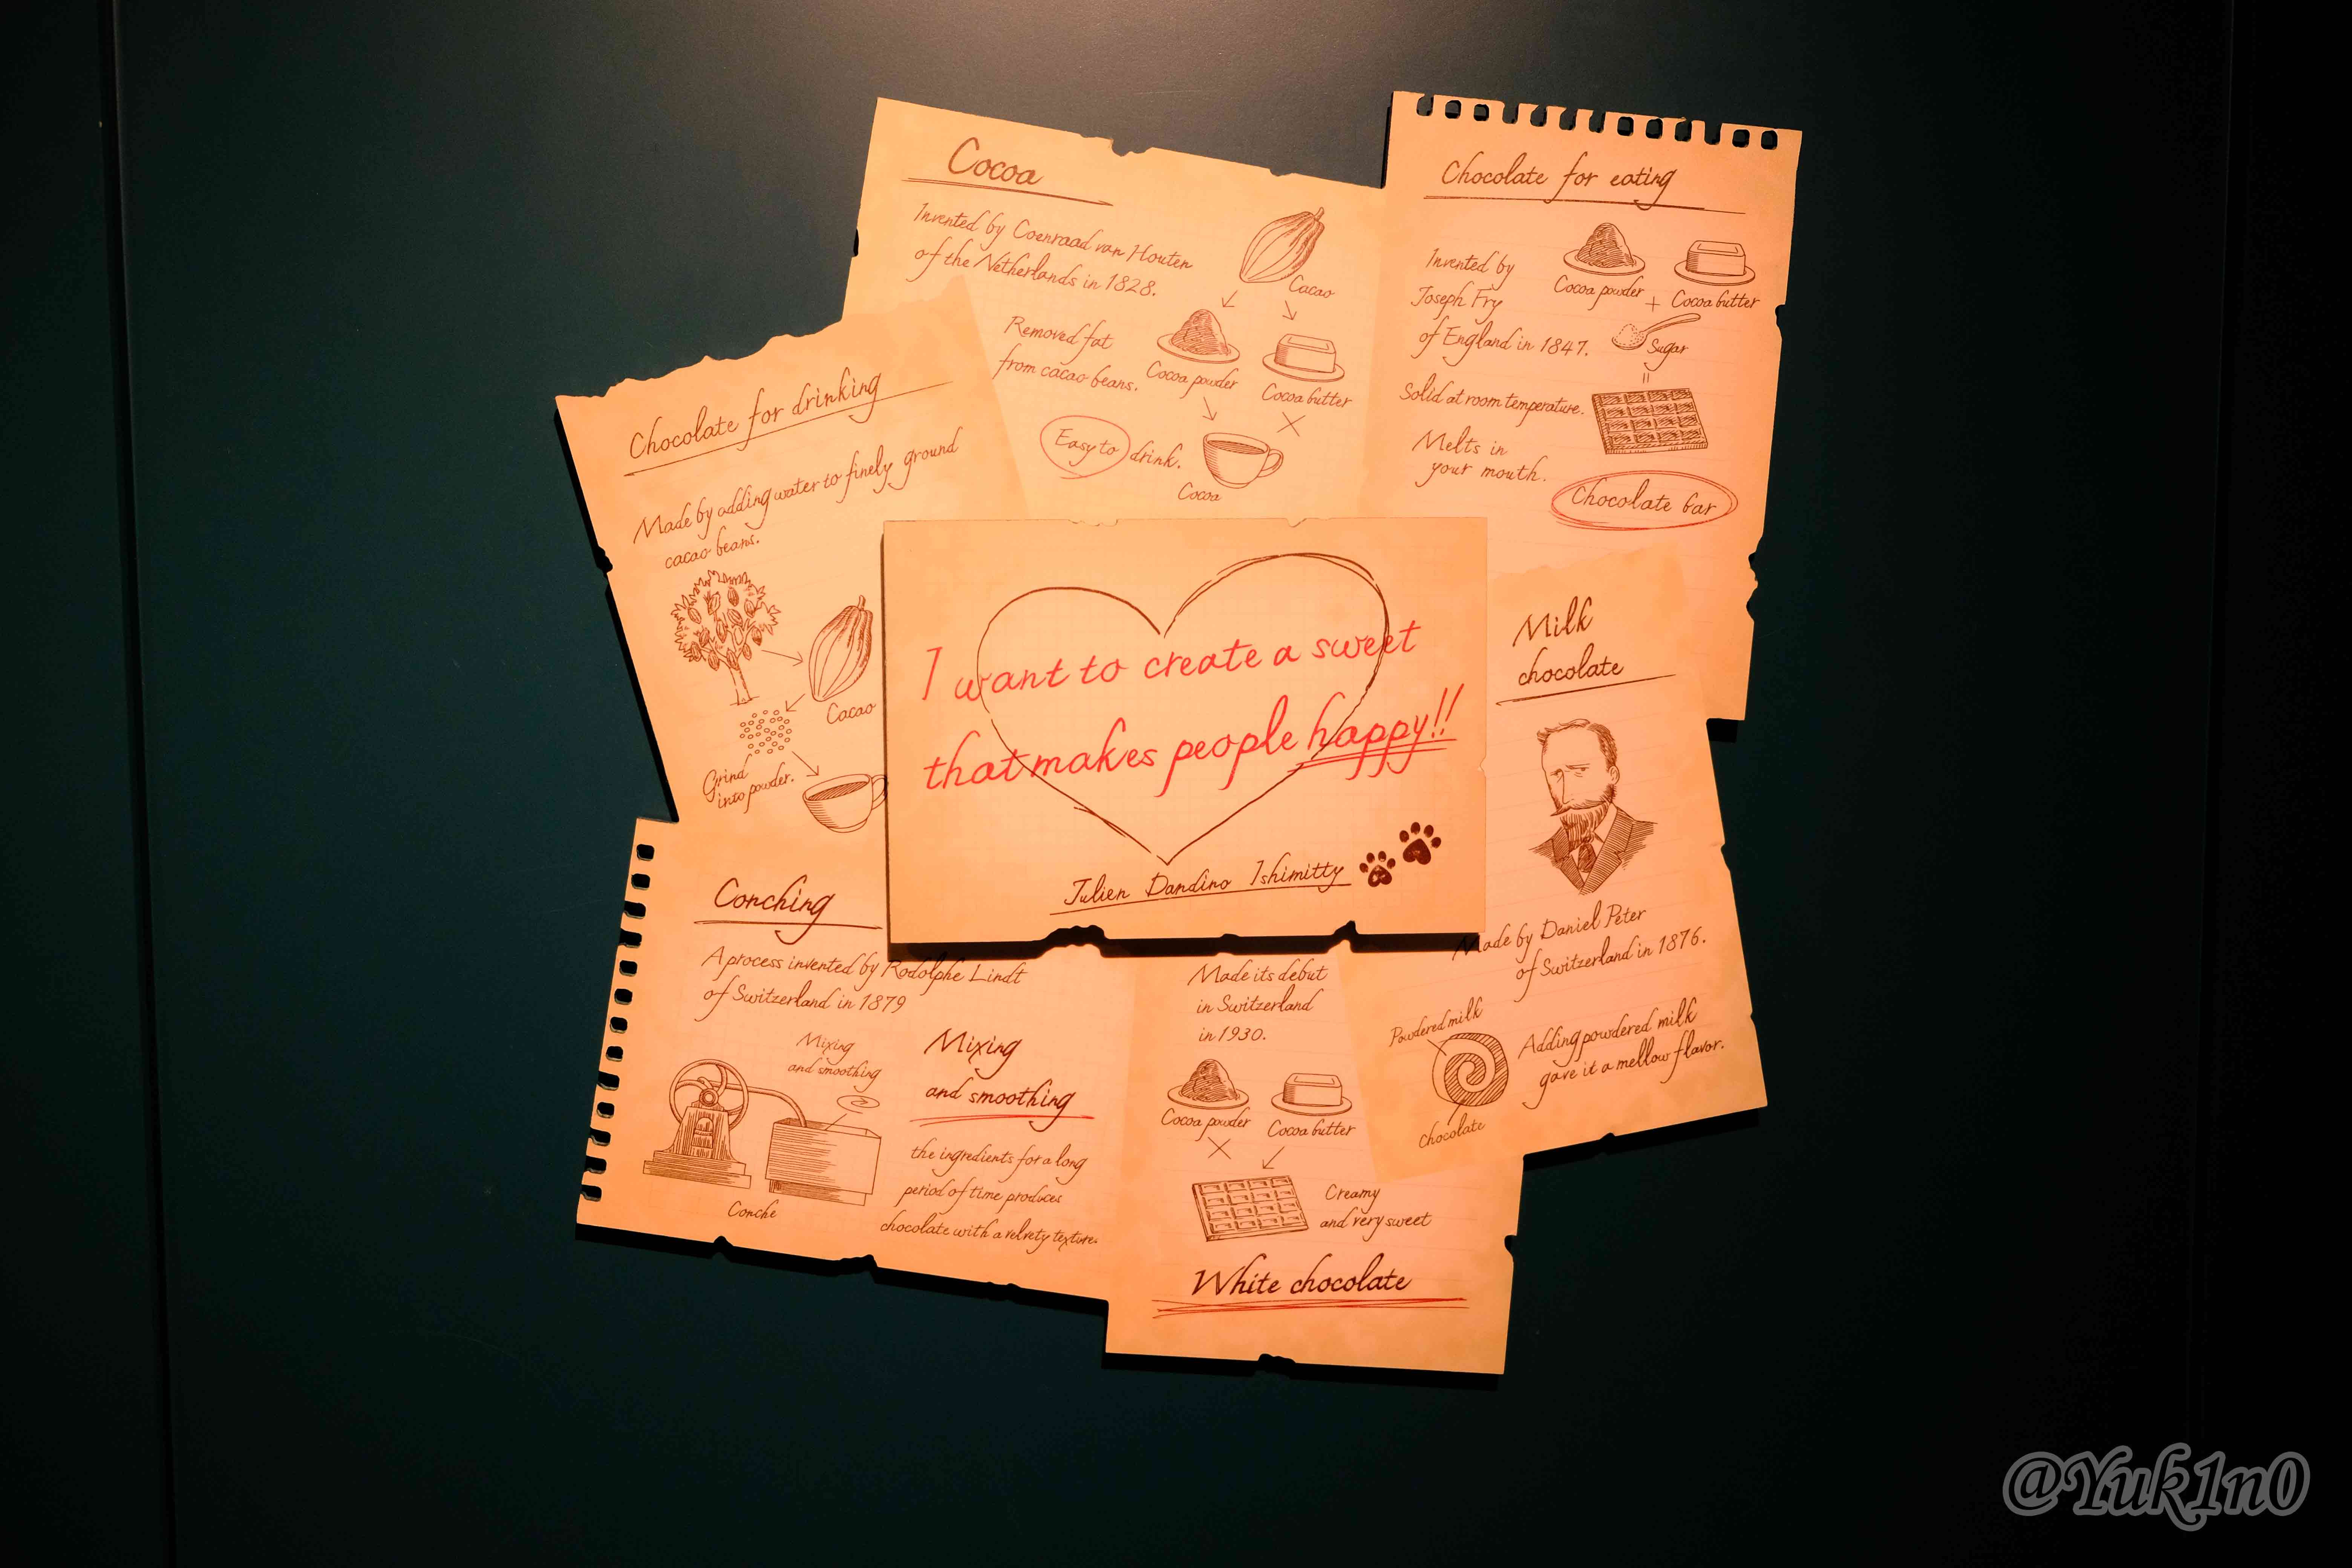 Cocoa
Invented by Coenraad van Houten
of the Netherlands in 1828.
Cacao
Removed fat
from cacao beans.
Cocoa powder
Cocoa butter
Easy to drink.
Cocoa
Chocolate for eating
Invented by
Joseph Fry
of England in 1847.
Cocoa powder
+
Cocoa butter
Sugar
=
Solid at room temperature.
Melts in
your mouth.
Chocolate bar
Chocolate for drinking
Made by adding water to finely ground
cacao beans.
Cacao
Grind
into powder.
I want to create a sweet
that makes people happy!!
Julien Dandino Ishimitty
Milk
chocolate
Made by Daniel Peter
of Switzerland in 1876.
Powdered milk
Chocolate
Adding powdered milk
gave it a mellow flavor.
Conching
A process invented by Rodolphe Lindt
of Switzerland in 1879
Mixing
and smoothing
Conche
Mixing
and smoothing
the ingredients for a long
period of time produces
chocolate with a velvety texture.
Made its debut
in Switzerland
in 1930.
Cocoa powder
Cocoa butter
Creamy
and very sweet
White chocolate
@Yuk1n0